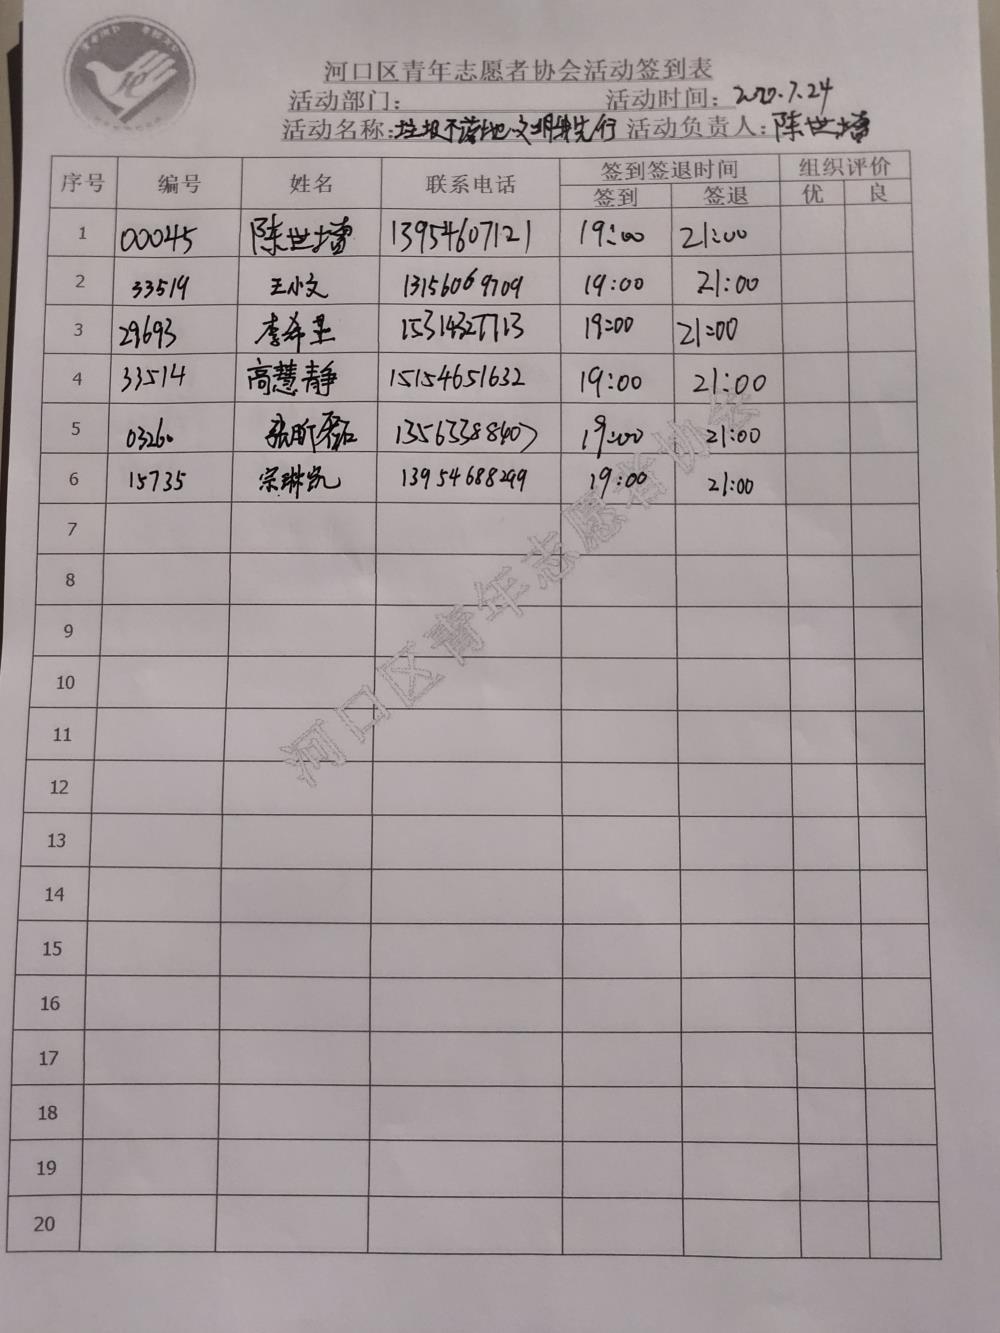 河口区青年志愿者协会活动签到表
活动部门： 活动时间：2020.7.24
活动名称：垃圾不落地 文明我先行 活动负责人：陈世増
序号 编号 姓名 联系电话 签到签退时间 组织评价
签到 签退 优 良
1 00045 陈世増 13954607121 19:00 21:00
2 33519 王小文 13156069709 19:00 21:00
3 29693 李希 15314327713 19:00 21:00
4 33514 高慧静 15154651632 19:00 21:00
5 03260 张昕磊 13563388407 19:00 21:00
6 15735 宗琳凯 13954688299 19:00 21:00
7
8
9
10
11
12
13
14
15
16
17
18
19
20
河口区青年志愿者协会